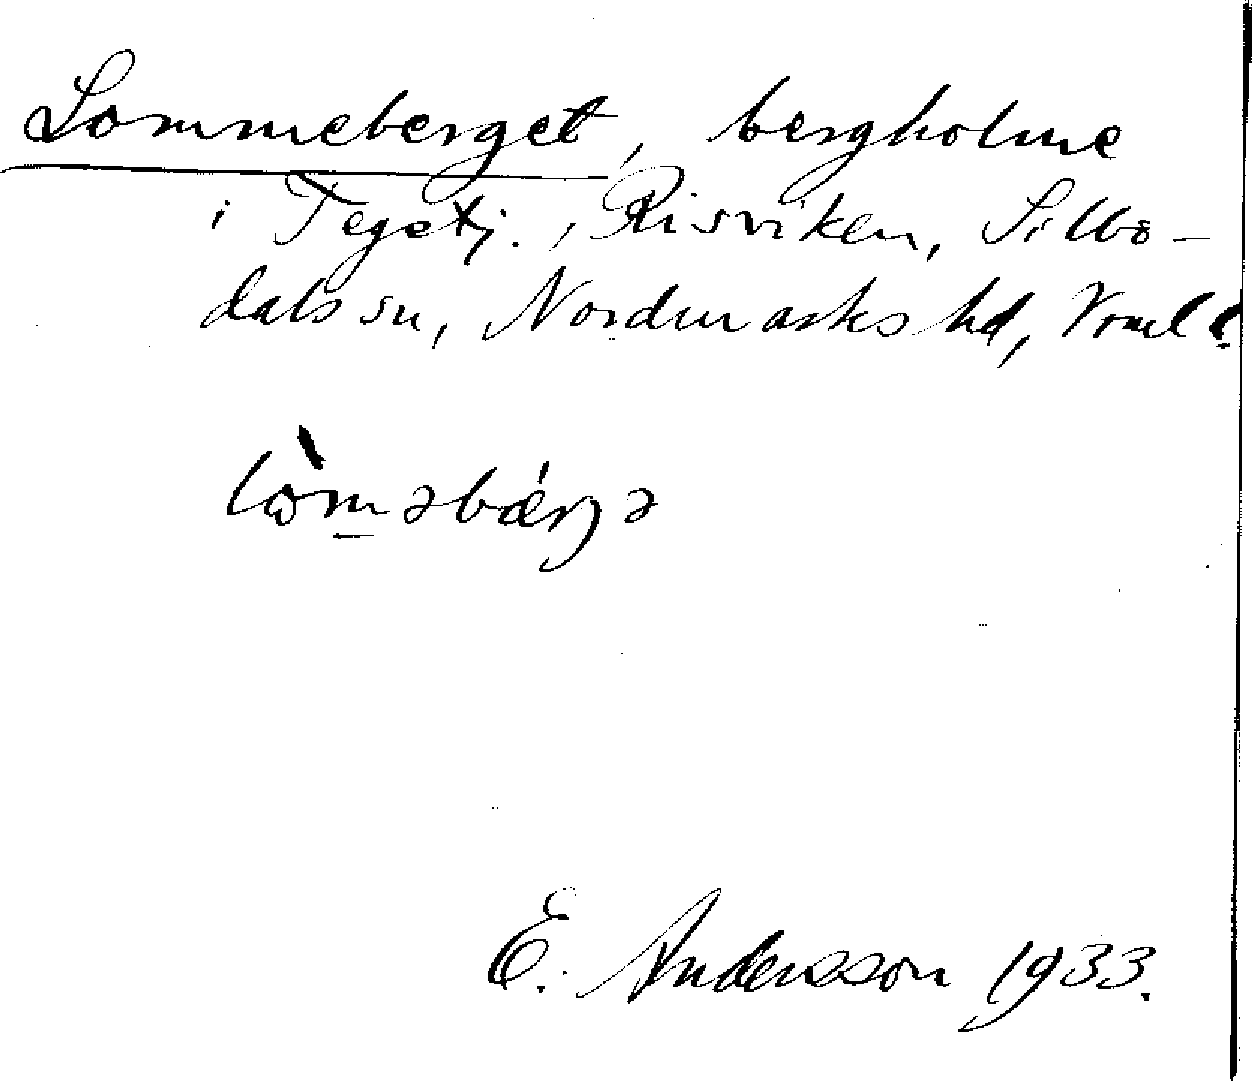 Lommeberget, bergholme
i Tegetj., Risviken, Silbo-
dals sn, Nordmarks hd, Vrml.
lòməbǽrjə
E. Andersson 1933.